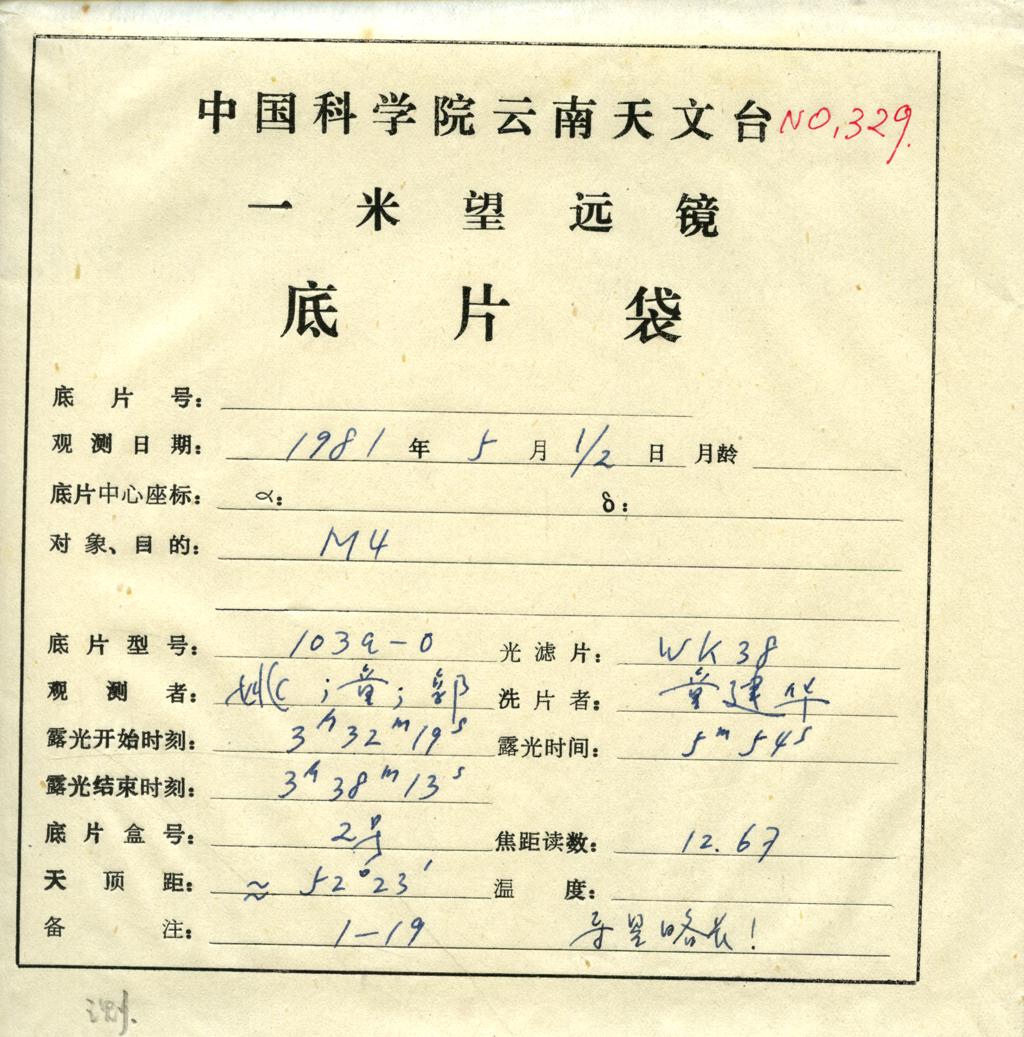 中国科学院云南天文台 NO,329.
一米望远镜
底片袋
底片号:
观测日期: 1981年 5月 1/2日 月龄
底片中心座标: α: δ:
对象、目的: M4
底片型号: 103a-0 光滤片: WK38
观测者: ; 童; 郭 洗片者: 童建华
露光开始时刻: 3h32m19s 露光时间: 5m54s
露光结束时刻: 3h38m13s
底片盒号: 2号 焦距读数: 12.67
天顶距: ≈ 52°23′ 温度:
备注: 1-19 导星略长!
测.